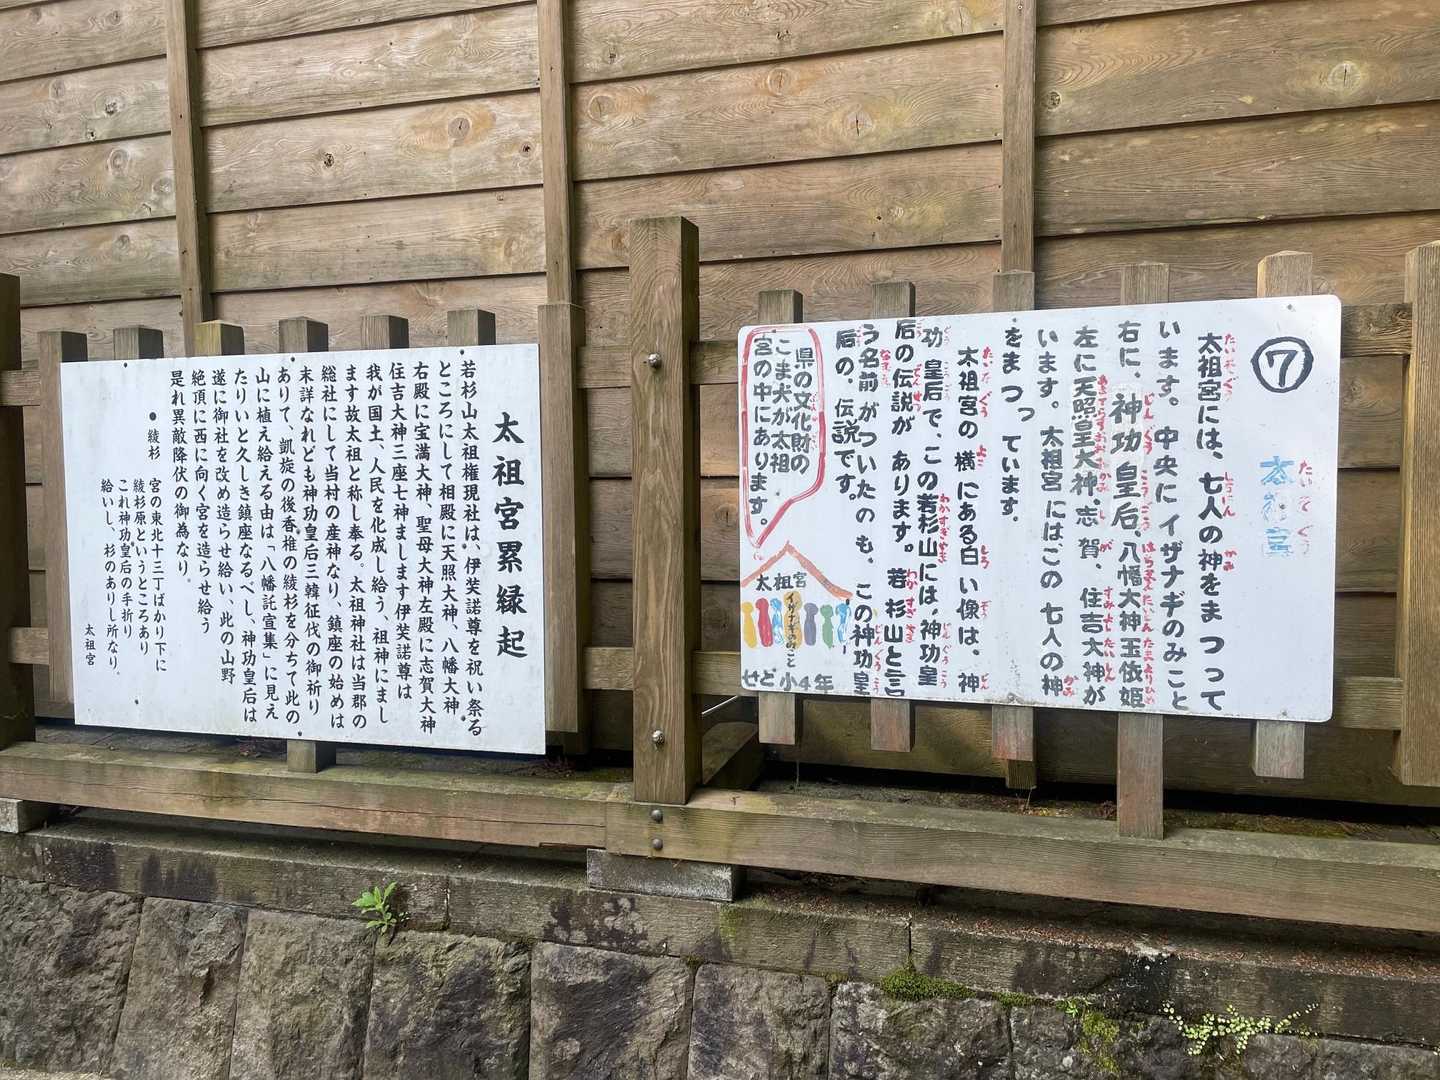 ⑦
太祖宮
太祖宮には、七人の神をまつって
います。中央にイザナギのみこと
右に、神功皇后、八幡大神玉依姫
左に天照皇大神、志賀、住吉大神が
います。太祖宮にはこの七人の神
をまつっています。
太祖宮の横にある白い像は、神
功皇后で、この若杉山には、神功皇
后の伝説があります。若杉山と言
う名前がついたのも、この神功皇
后の、伝説です。
県の文化財の
こま犬が太祖
宮の中にあります。
太祖宮
イザナギのみこと
せど小4年
太祖宮累縁起
若杉山太祖権現社は、伊弉諾尊を祝い祭る
ところにして相殿に天照大神、八幡大神
右殿に宝満大神、聖母大神左殿に志賀大神
住吉大神三座七神まします伊弉諾尊は
我が国土、人民を化成し給う、祖神にまし
ます故太祖と称し奉る。太祖神社は当郡の
総社にして当村の産神なり、鎮座の始めは
末詳なれども神功皇后三韓征伐の御祈り
ありて、凱旋の後香椎の綾杉を分ちて此の
山に植え給える由は「八幡託宣集」に見え
たりいと久しき鎮座なるべし、神功皇后は
遂に御社を改め造らせ給い、此の山野
絶頂に西に向く宮を造らせ給う
是れ異敵降伏の御為なり。
●綾杉 宮の東北十三丁ばかり下に
綾杉原というところあり
これ神功皇后の手折り
給いし、杉のありし所なり。
太祖宮